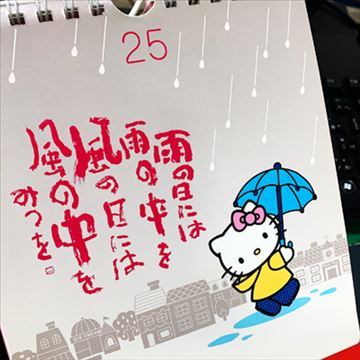 25
雨の日には
雨の中を
風の日には
風の中を
みつを